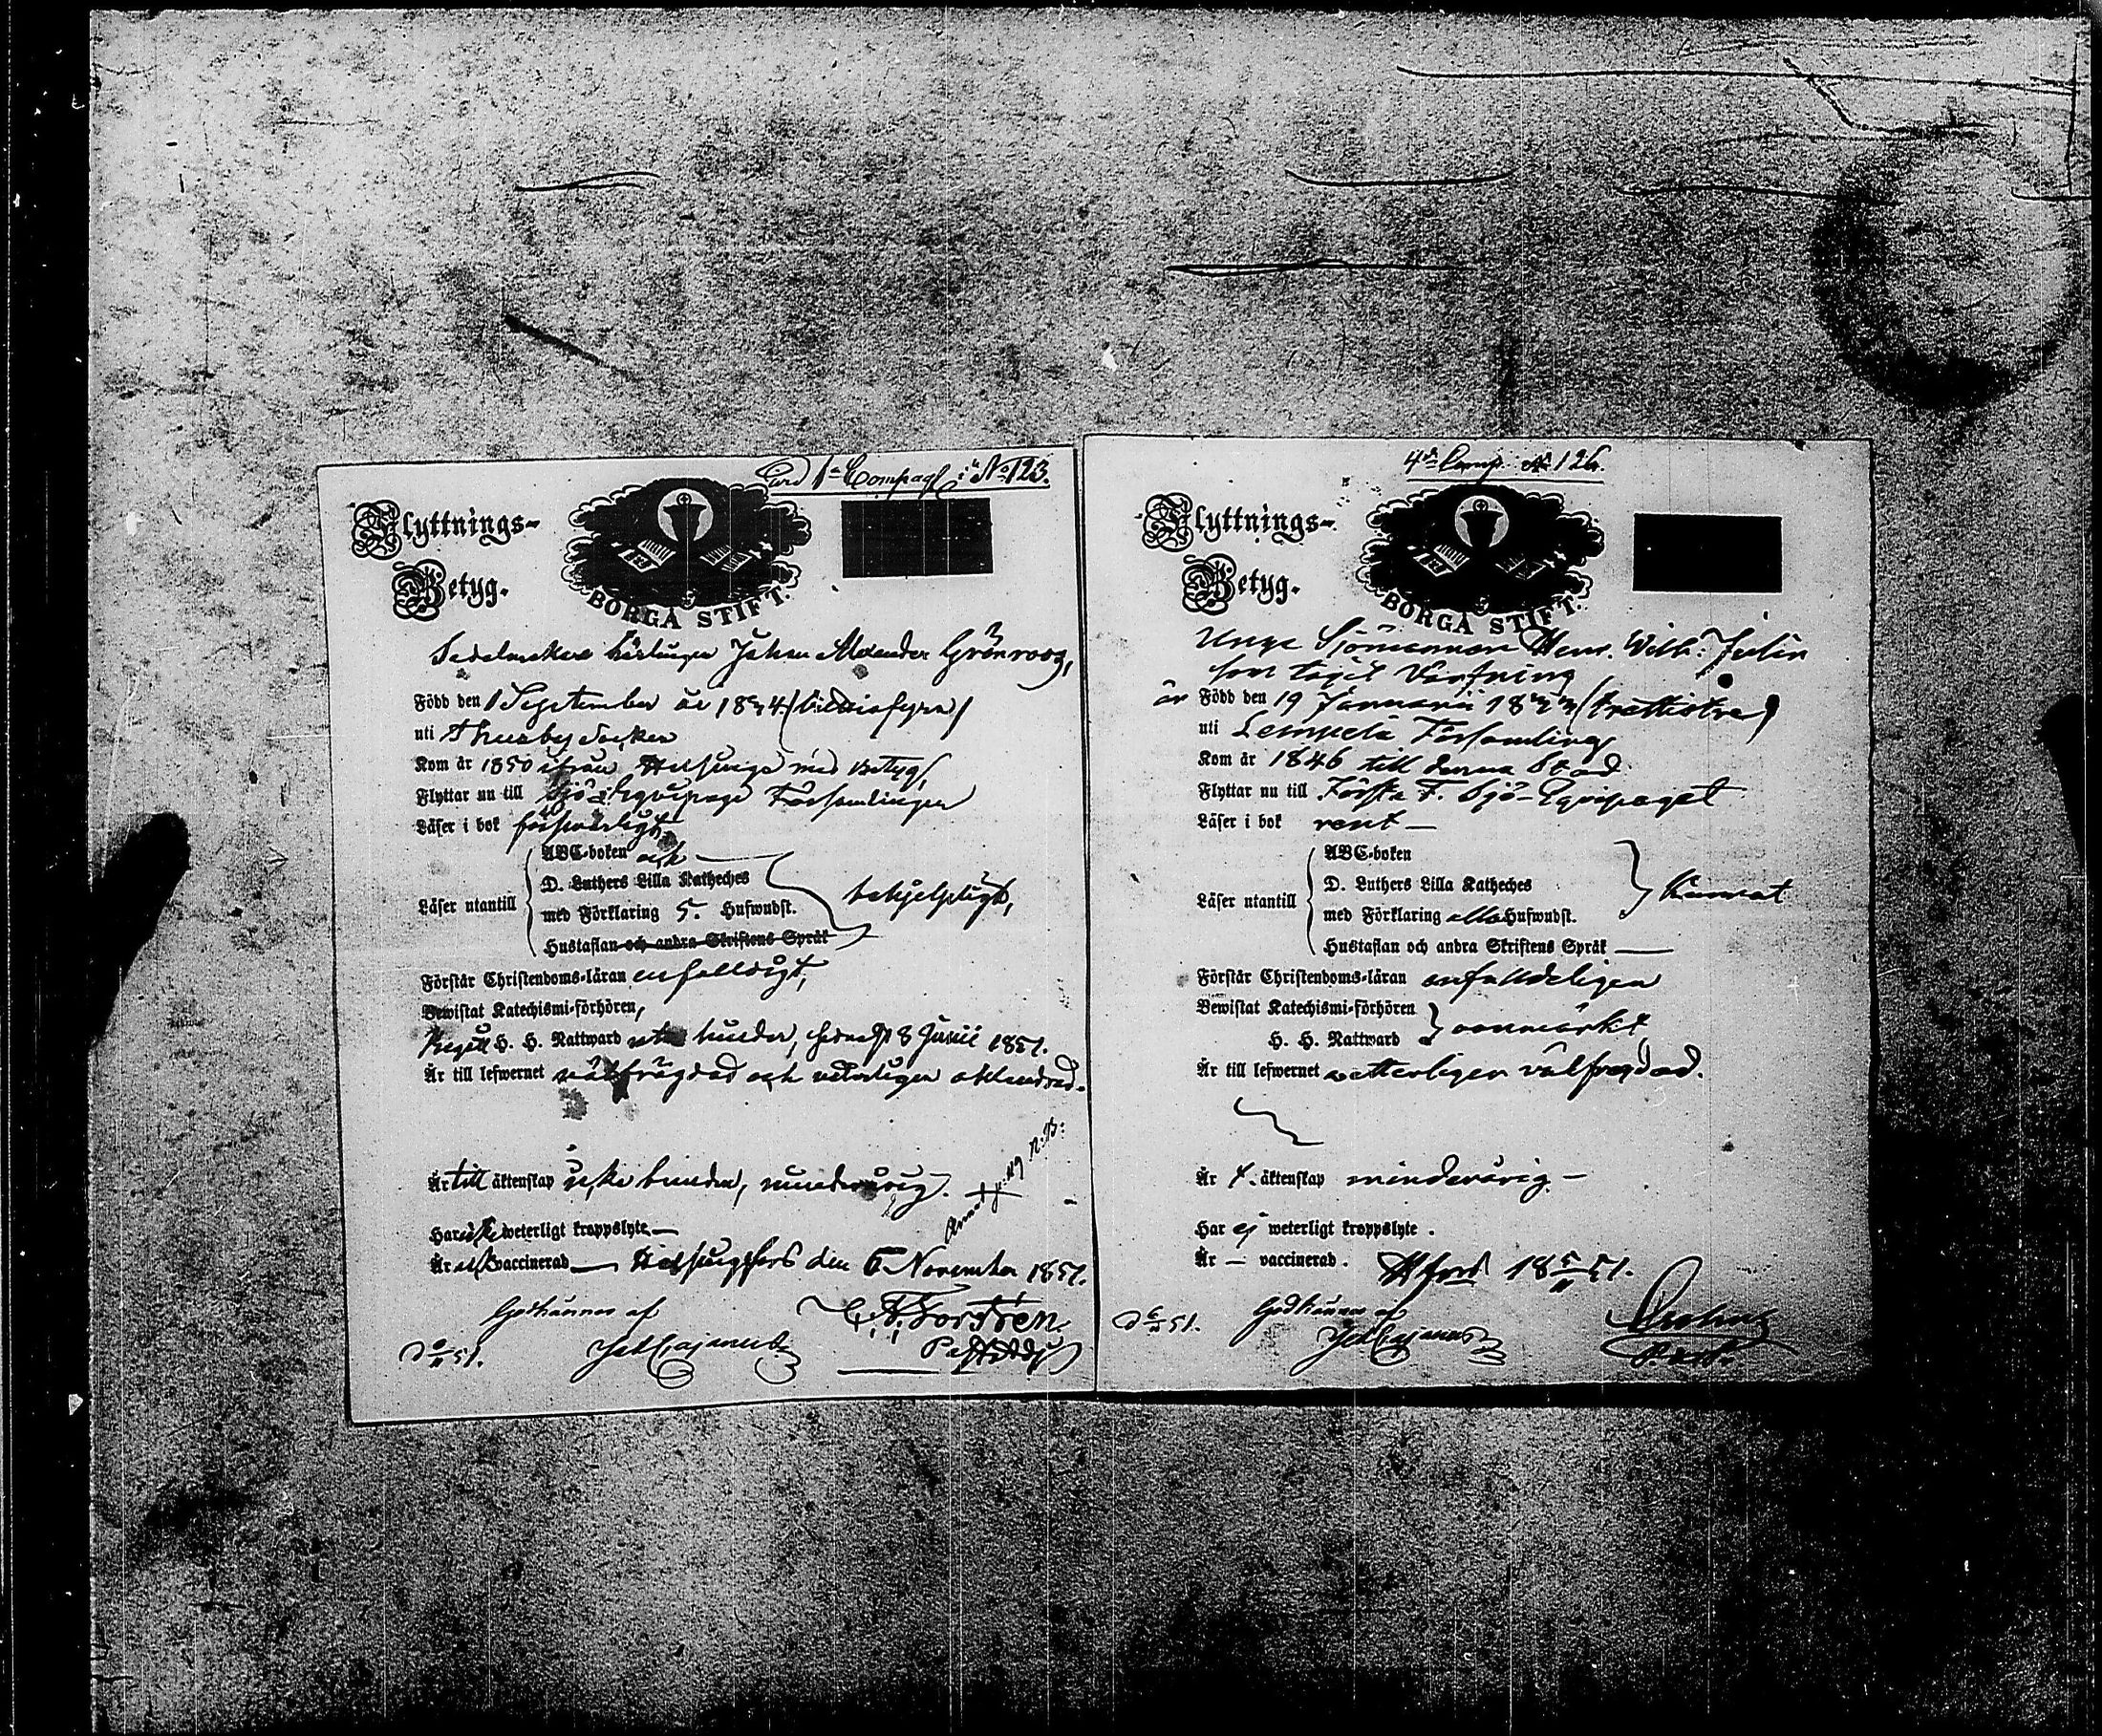 1a Compagi: No 123.
Flyttnings-
Betyg.
BORGÅ STIFT.
Johan Alexander Grönroos,
Född den 1 September år 1834
uti Thusby Socken
Kom år 1850 ifrån med betyg,
Flyttar nu till Sjö Equipage Församlingen
Läser i bok försvarligt,
Läser utantill
ABC-boken och
D. Luthers Lilla Katheches
med Förklaring 5. Hufwudst.
Hustaflan och andra Skriftens Språk
behjelpligt,
Förstår Christendoms-läran enfaldigt,
Bewistat Katechismi-förhören,
Begått H. H. Nattward hinder, sednast 8 Junii 1851.
Är till lefwernet välfrägdad och
Är till äktenskap icke bunden, minderårig.
Har icke weterligt kroppslyte
Är vaccinerad Helsingfors den 6 November 1851.
Godkännes af
C. F. Forstén
51.
4de Comp. No 126.
Flyttnings-
Betyg.
BORGÅ STIFT.
Unge Sjömannen Henr. Wilh: Julin
som tagit Värfning
är Född den 19 Januarii 1833 (trettiotre)
uti Lempelä Församling
Kom år 1846 till denna Stad
Flyttar nu till Första F. Sjö-Equipaget
Läser i bok rent
Läser utantill
ABC-boken
D. Luthers Lilla Katheches
med Förklaring alla Hufwudst.
Hustaflan och andra Skriftens Språk
Förstår Christendoms-läran enfaldeligen
Bewistat Katechismi-förhören
H. H. Nattward
oanmärkt
Är till lefwernet wetterligen välfregdad.
Är t. äktenskap minderårig
Har ej weterligt kroppslyte.
Är — vaccinerad. Hfors 18 5/11 51.
Godkännes af
51.